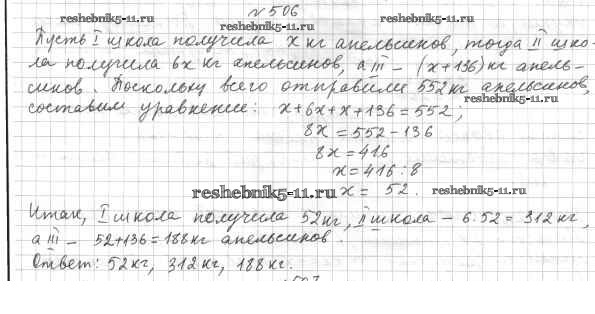 №506
reshebnik5-11.ru reshebnik5-11.ru reshebnik5-11.ru
Пусть I школа получила x кг апельсинов, тогда II шко-
ла получила 6x кг апельсинов, а III – (x+136) кг апель-
синов. Поскольку всего отправили 552 кг апельсинов,
reshebnik5-11.ru
составим уравнение: x+6x+x+136=552;
8x=552-136
8x=416
x=416:8
reshebnik5-11.ru x= 52. reshebnik5-11.ru
Итак, I школа получила 52кг, II школа – 6·52=312 кг,
а III – 52+136=188кг апельсинов.
Ответ: 52кг, 312 кг, 188 кг.